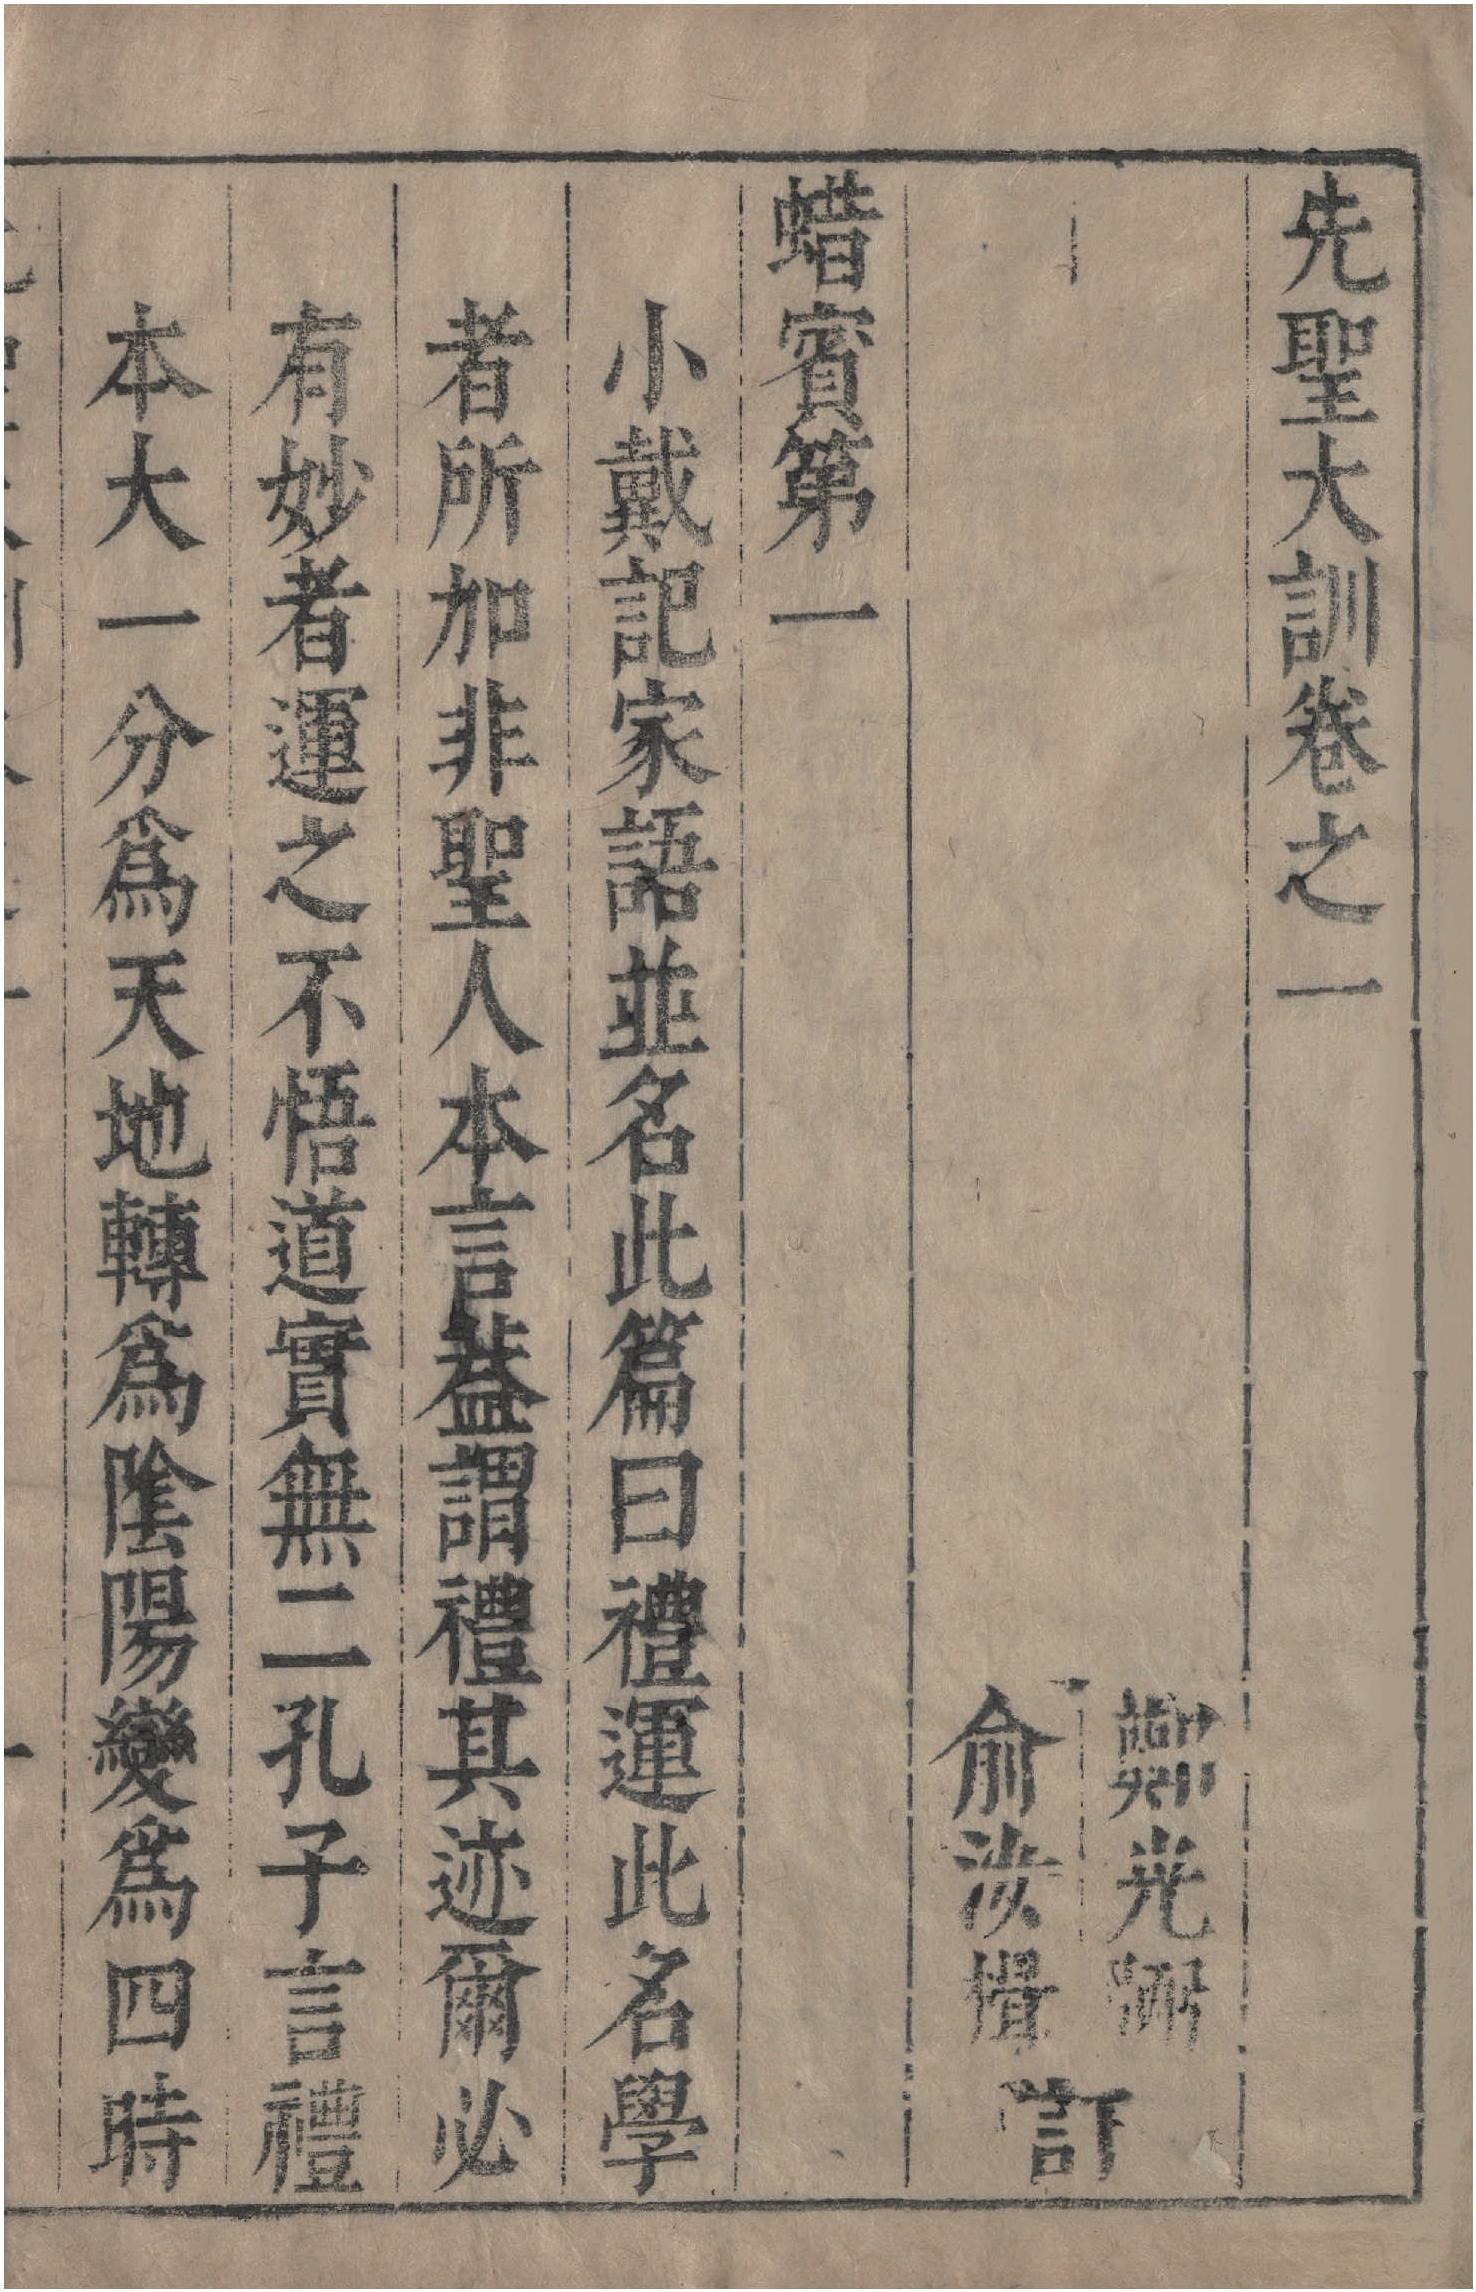 先聖大訓卷之一
光
俞汝楫
訂
蜡賓第一
小戴記家語並名此篇曰禮運此名學
者所加非聖人本言葢謂禮其迹爾必
有妙者運之不悟道實無二孔子言禮
本大一分爲天地轉爲陰陽變爲四時